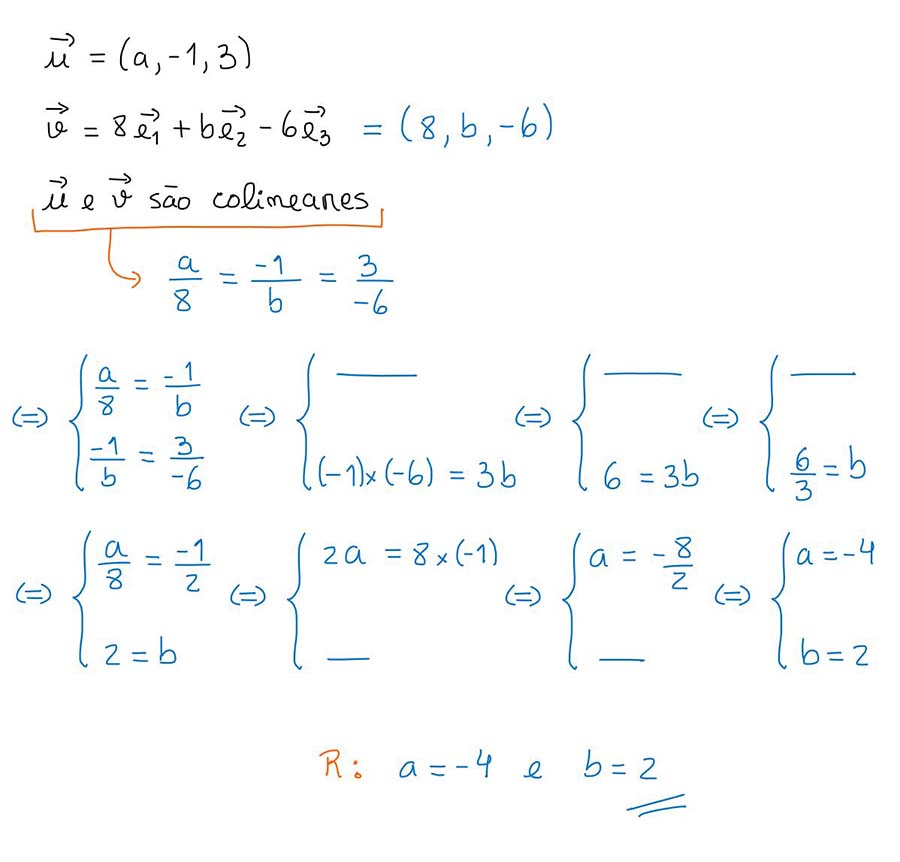 u⃗ = (a, -1, 3)
v⃗ = 8e⃗₁ + be⃗₂ - 6e⃗₃ = (8, b, -6)
u⃗ e v⃗ são colineares
a/8 = -1/b = 3/-6
(=) { a/8 = -1/b ; -1/b = 3/-6 (=) { —— ; (-1)×(-6) = 3b (=) { —— ; 6 = 3b (=) { —— ; 6/3 = b
(=) { a/8 = -1/2 ; 2 = b (=) { 2a = 8×(-1) ; — (=) { a = -8/2 ; — (=) { a = -4 ; b = 2
R: a = -4 e b = 2